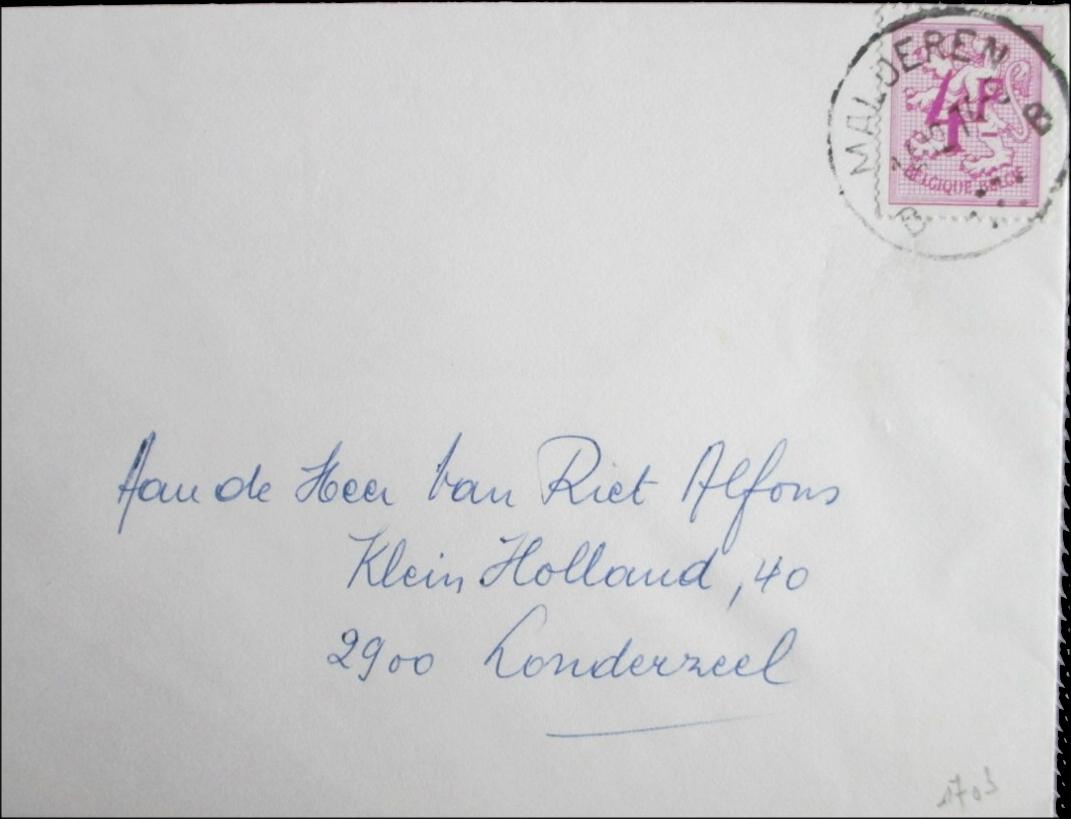 MALDEREN
B
4F
BELGIQUE BELGIE
B
Aan de Heer Van Riet Alfons
Klein Holland, 40
2900 Londerzeel
1703